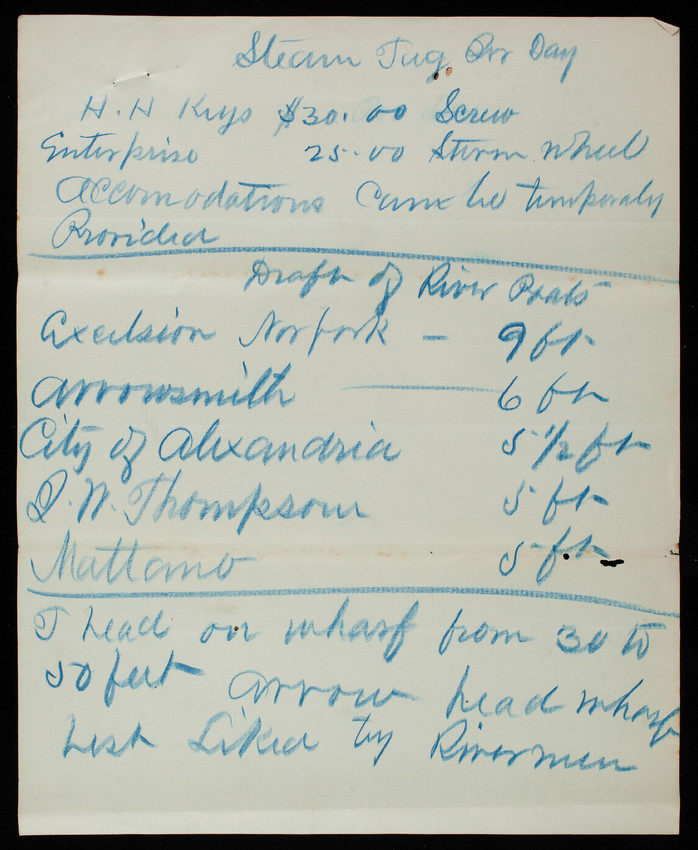 Steam Tug Per Day
H. H Keys $30.00 Screw
Enterprise 25.00 Stern Wheel
Accomodations Can be temporaly
Provided
Draft of River Boats
Excelsior Norfork — 9 ft
Arrowsmith — 6 ft
City of Alexandria 5 1/2 ft
W. Thompson 5 ft
Mattano 5 ft
T head on wharf from 30 to
50 feet arrow head wharf
best Liked by Rivermen